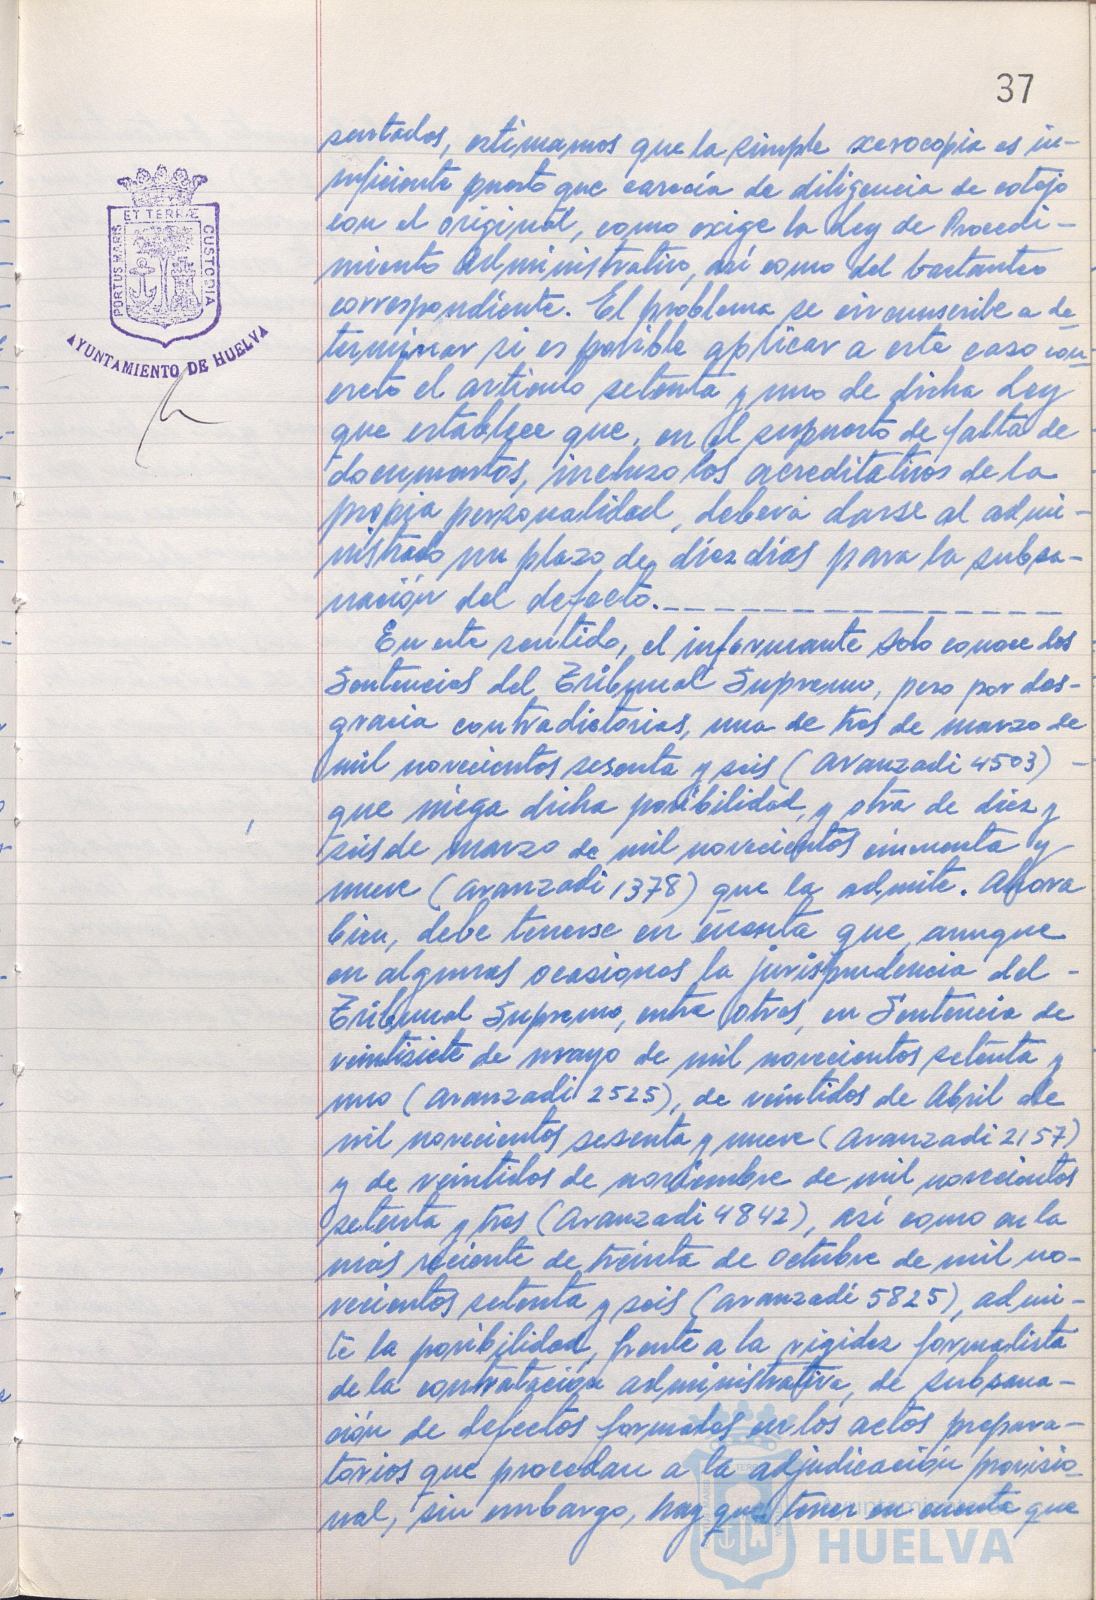 37
sentados, estimamos que la simple xerocopia es in-
suficiente puesto que carecía de diligencia de cotejo
con el original, como exige la Ley de Procedi-
miento Administrativo, así como del bastanteo
correspondiente. El problema se circunscribe a de-
terminar si es posible aplicar a este caso con-
creto el artículo setenta y uno de dicha Ley
que establece que, en el supuesto de falta de
documentos, incluso los acreditativos de la
propia personalidad, deberá darse al admi-
nistrado un plazo de diez dias para la subsa-
nación del defecto.
En este sentido, el informante solo conoce dos
Sentencias del Tribunal Supremo, pero por des-
gracia contradictorias, una de tres de marzo de
mil novecientos sesenta y seis (Aranzadi 4503) -
que niega dicha posibilidad, y otra de diez y
seis de marzo de mil novecientos cincuenta y
nueve (Aranzadi 1378) que la admite. Ahora
bien, debe tenerse en cuenta que, aunque
en algunas ocasiones la jurisprudencia del -
Tribunal Supremo, entre otras, en Sentencia de
veintisiete de mayo de mil novecientos setenta y
uno (Aranzadi 2525), de veintidos de Abril de
mil novecientos sesenta y nueve (Aranzadi 2157)
y de veintidos de noviembre de mil novecientos
setenta y tres (Aranzadi 4842), así como en la
más reciente de treinta de octubre de mil no-
vecientos setenta y seis (Aranzadi 5825), admi-
te la posibilidad, frente a la rigidez formalista
de la contratación administrativa, de subsana-
ción de defectos formales en los actos prepara-
torios que procedan a la adjudicación provisio-
nal, sin embargo, hay que tener en cuenta que
PORTUS MARIS
ET TERRÆ
CUSTODIA
AYUNTAMIENTO DE HUELVA
Ayuntamiento de
HUELVA